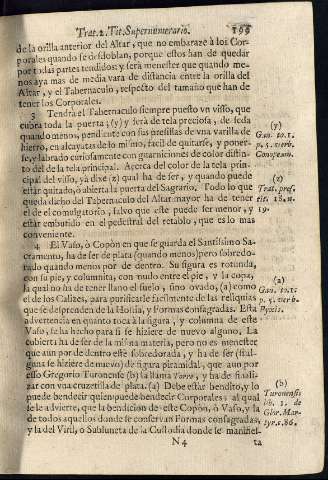 Trat. 2. Tit. Supernumerario. 199
de la orilla anterior del Altar, que no embaraze à los Cor-
porales quando se desdoblan, porque estos han de quedar
por todas partes tendidos: y será menester que quando me-
nos aya mas de media vara de distancia entre la orilla del
Altar, y el Tabernaculo, respecto del tamaño que han de
tener los Corporales.
3 Tendrá el Tabernaculo siempre puesto vn visso, que
cubra toda la puerta; (y) y será de tela preciosa, ò de seda
quando menos, pendiente con sus presillas de vna varilla de
hierro, en alcayatas de lo mismo, facil de quitarse, y poner-
se, y labrado curiosamente con guarniciones de color distin-
to del de la tela principal. Acerca del color de la tela prin-
cipal del visso, ya dixe (z) qual ha de ser, y quando puede
estár quitado, ò abierta la puerta del Sagrario. Todo lo que
queda dicho del Tabernaculo del Altar mayor ha de tener
el de el comulgatorio, salvo que este puede ser menor, y
estár embutido en el pedestral del retablo, que es lo mas
conveniente.
4 El Vaso, ò Copòn en que se guarda el Santissimo Sa-
cramento, ha de ser de plata (quando menos) pero sobredo-
rado quando menos por de dentro. Su figura es rotunda,
con su pie, y columnita, con nudo entre el pie, y la copa,
la qual no ha de tener llano el suelo, sino ovado, (a) como
el de los Calizes, para purificarle facilmente de las reliquias
que se desprenden de la Hostia, y Formas consagradas. Esta
advertencia en quanto toca à la figura, y columna de este
Vaso, se ha hecho para si se hiziere de nuevo alguno. La
cubierta ha de ser de la misma materia, pero no es menester
que aun por de dentro esté sobredorada, y ha de ser (si al-
guna se hiziere de nuevo) de figura piramidal, que aun por
esso Gregorio Turonense (b) la llama Torre, y ha de finali-
zar con vna cruzetilla de plata. (a) Debe estár bendito, y lo
puede bendecir quien puede bendecir Corporales; al qual
se le advierte, que la bendicion de este Copòn, ò Vaso, y la
de todos aquellos donde se conservan Formas consagradas,
y la del Viril, ò Subluneta de la Custodia donde se manifies-
N4 ta
(y)
Gav. to. 1.
p. 5. verb.
Conopeum.
(z)
Trat. pres.
tit. 18. n.
19.
(a)
Gav. to. 1.
p. 5. verb.
Pyxis.
(b)
Turonensis
lib. 1. de
Glor. Mar-
tyr. c. 86.